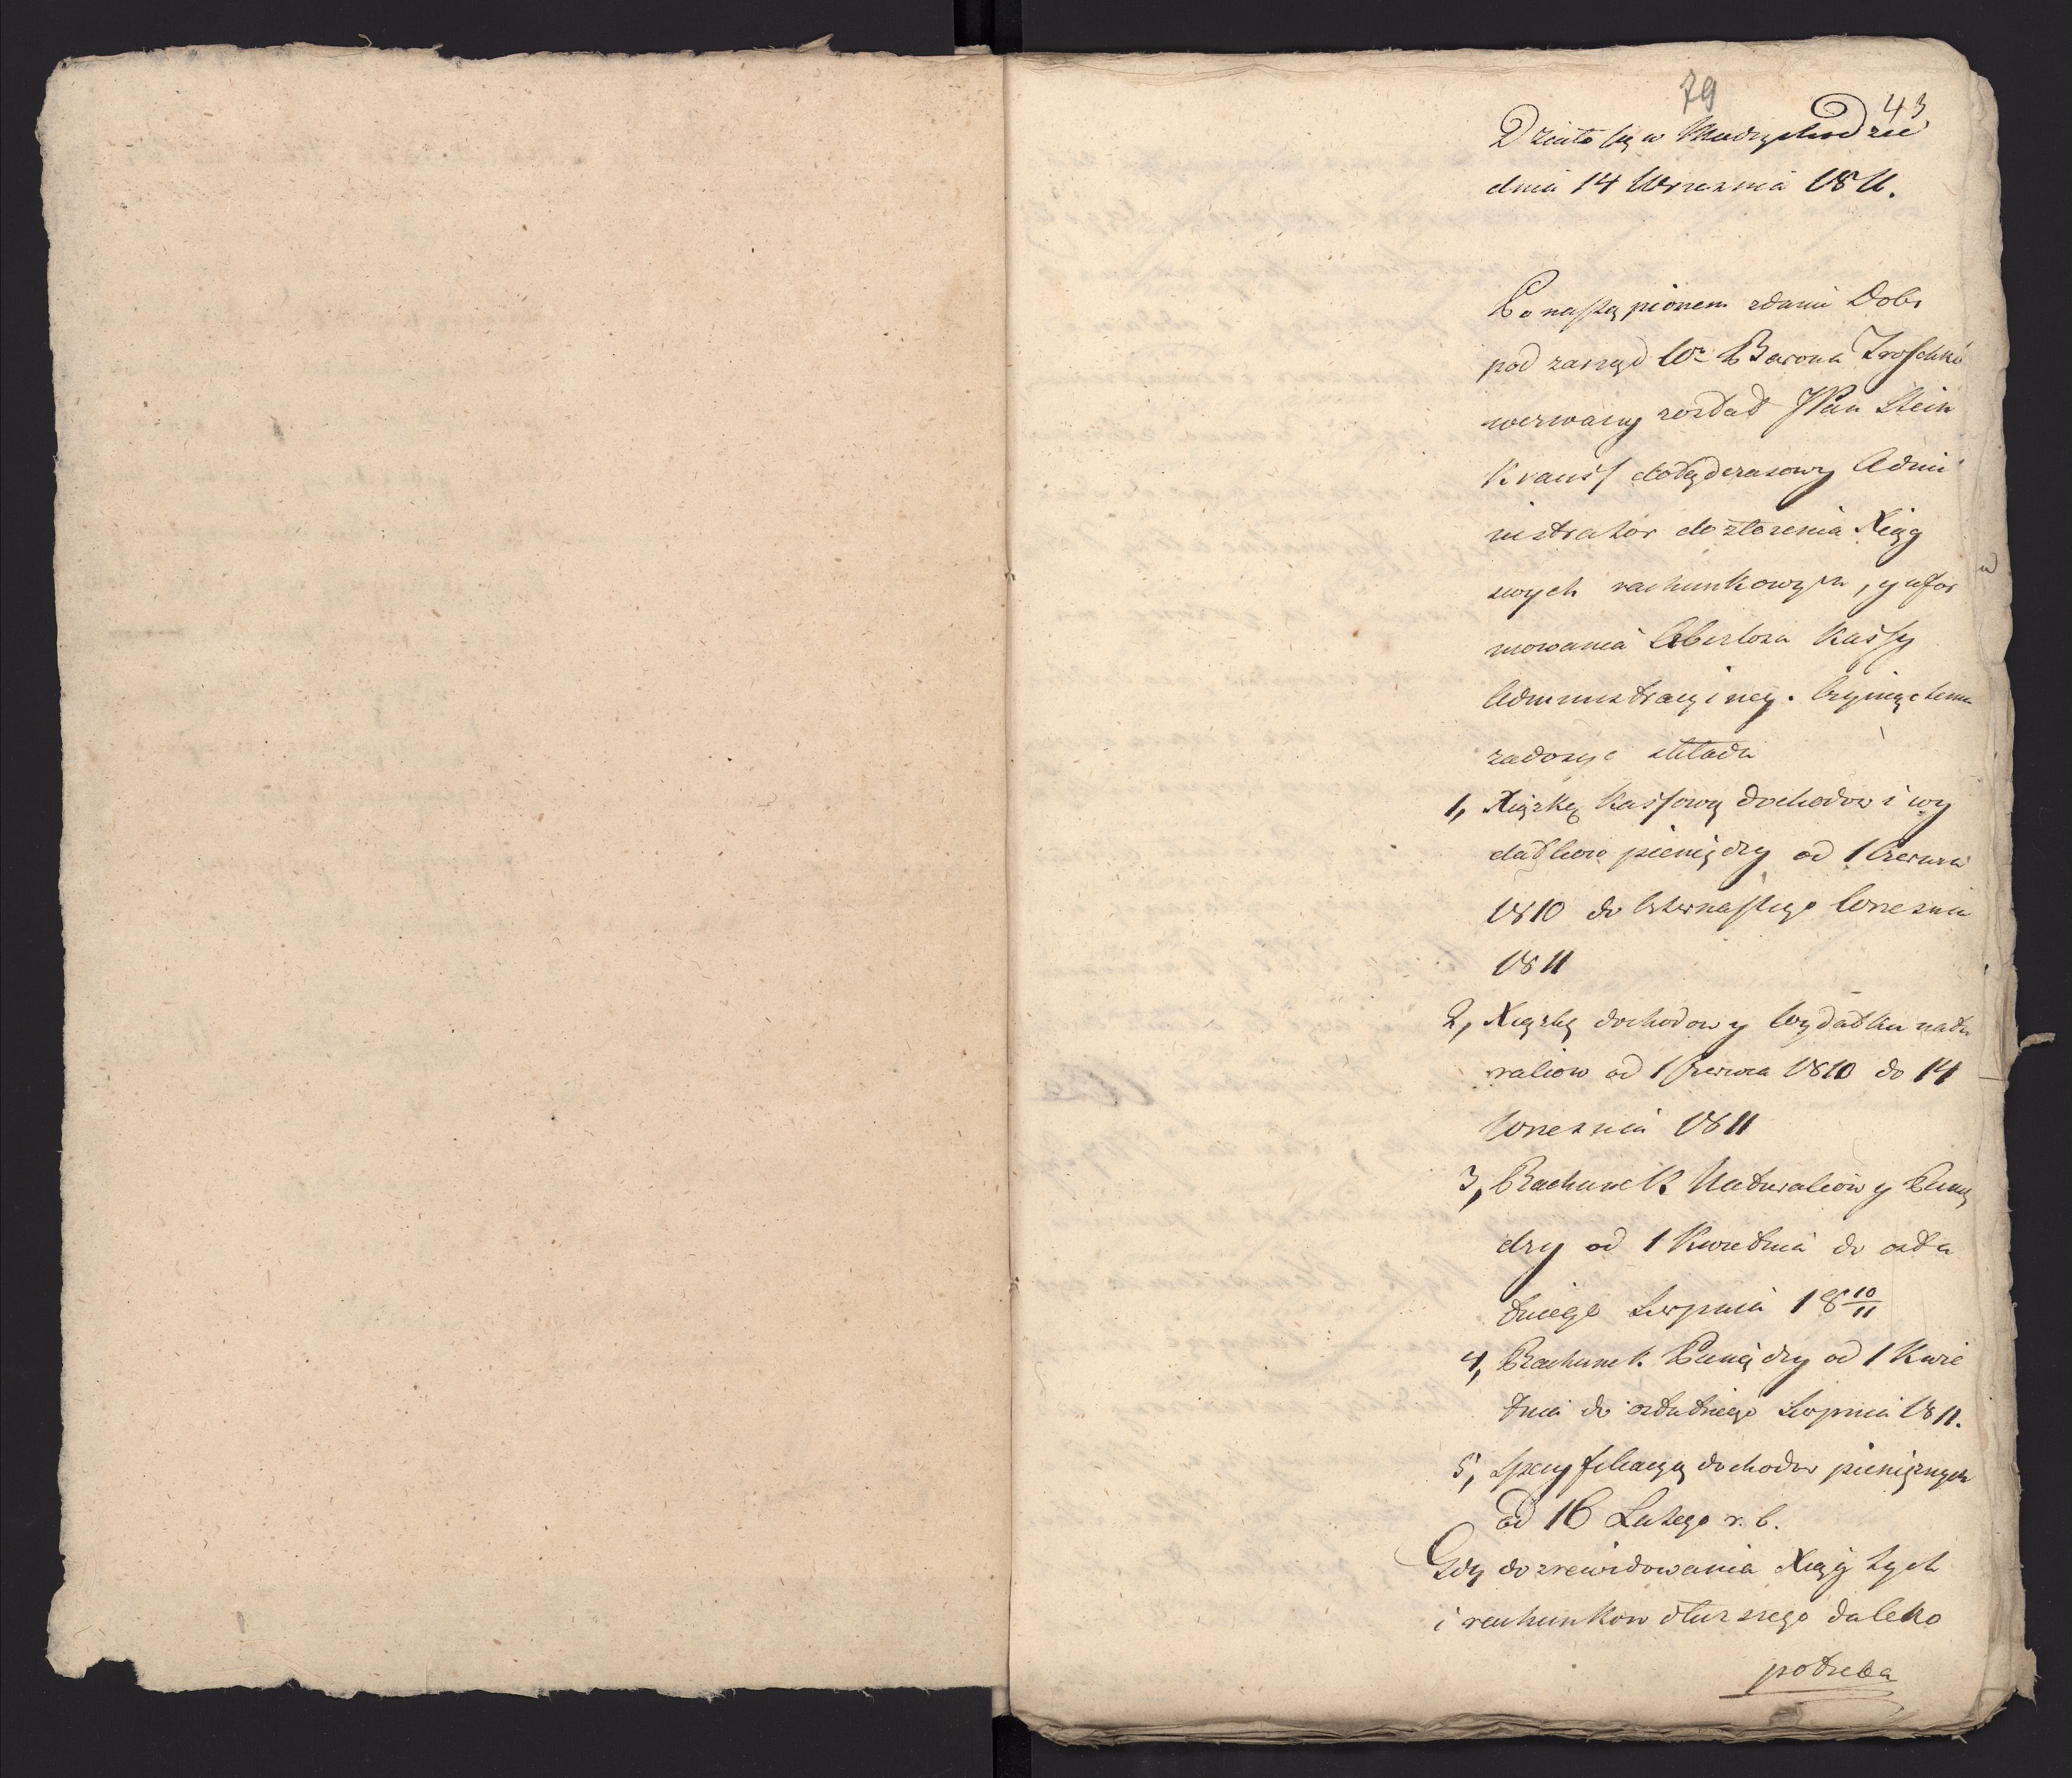 79
43
Działo się w Międzychodzie
dnia 14 Września 1811.
Po nastąpionem zdaniu Dobr
pod zarząd Wo Barona Troschke
wezwany został JPan Stein
Krauss dotychczasowy Admi
nistrator do złożenia Xiąg
swych rachunkowych, y ufor
mowania Abszlusu Kassy
Administracyiney. Czyniąc temu
zadosyć składa
1, Xiążkę Kassową dochodow i wy
datkow pieniędzy od 1 Czerwca
1810 do Czternastego Wrześnıa
1811
2, Xiążkę dochodow y Wydatku natu
raliow od 1 Czerwca 1810 do 14
Wrzesnia 1811
3, Rachunek Naturaliow y Pienię
dzy od 1 Kwietnia do osta
tniego Sierpnia 18 10/11
4, Rachunek Pieniędzy od 1 Kwie
tnia do ostatniego Sierpnia 1811.
5, Specyfikacyą dochodow pieniężnych
od 16 Lutego r. b.
Gdy do zrewidowania Xiąg tych
i rachunkow dłuższego daleko
potrzeba